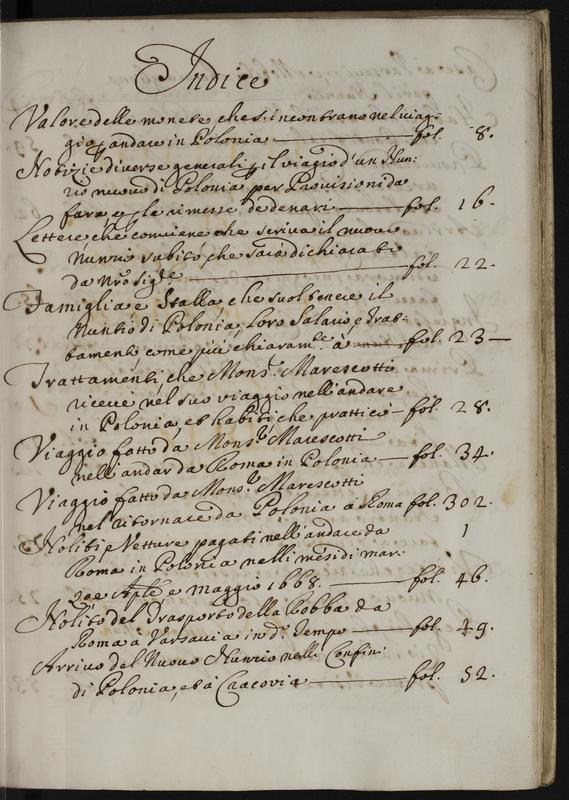 Indice
Valore delle monete che s'incontrano nel viag-
gio p andare in Polonia fol. 8.
Notizie diverse generali p il viagio d'un Nun:
rio nuovo di Polonia per Provisioni da
farà, e p le rimesse de denari fol. 16.
Lettere, che conviene che scriva il nuovo
Nunzio subito, che sarà dichiarato
da Nro Sigre fol. 22.
Famiglia e Stalla che suol tenere il
Nuntio di Polonia, loro Salario e Trat-
tamenti, come più chiaramte. a fol. 23
Trattamenti, che Monsr. Marescotti
riceve nel suo viaggio nell'andare
in Polonia, et habiti, che pratticò fol. 28.
Viaggio fatto da Monsr. Marescotti
nell'andar da Roma in Polonia fol. 34.
Viaggio fatto da Monsr. Marescotti
nel ritornare da Polonia à Roma fol. 302.
Noliti, e Vetture pagati nell'andare da 1
Roma in Polonia nelli mesi di mar:
zo e Aple e Maggio 1668. fol. 46.
Nolito del Trasporto della Robba da
Roma à Varsavia in do. Tempo fol. 49.
Arrivo del Nuovo Nunzio nelli Confini
di Polonia, et à Cracovia fol. 52.